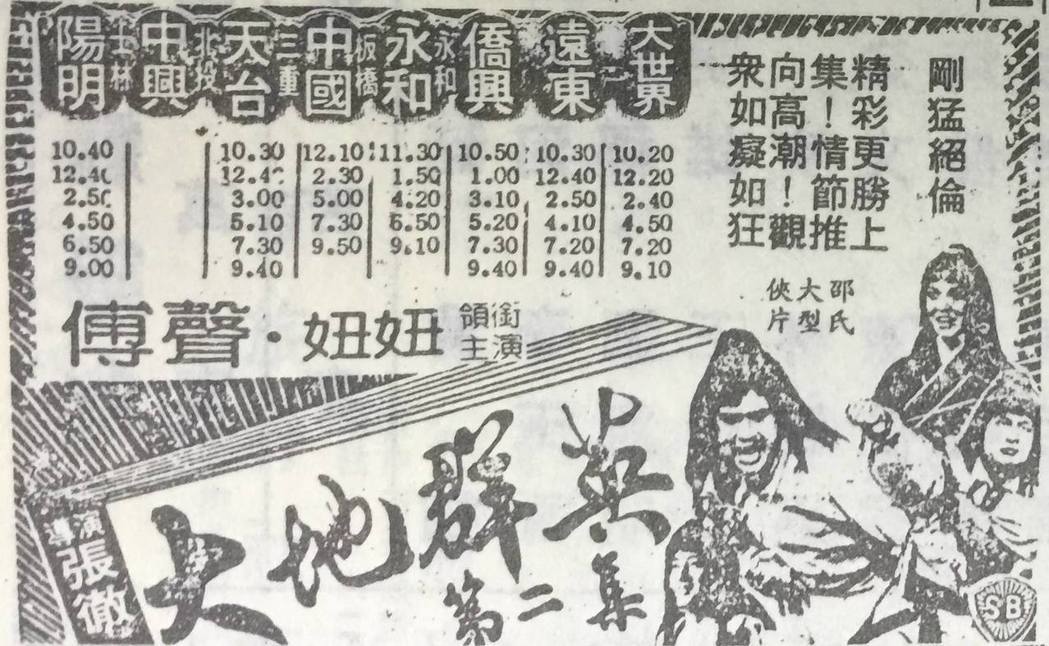 剛猛絕倫
精彩更勝上
集！情節推
向高潮！觀
衆如癡如狂
邵氏
大型
俠片
大世界
遠東
僑興
永和
永和
板橋
中國
三重
天台
北投
中興
士林
陽明
10.40 10.30 12.10 11.30 10.50 10.30 10.20
12.40 2.30 1.50 1.00 12.40 12.20
2.50 3.00 5.00 4.20 3.10 2.50 2.40
4.50 5.10 7.30 6.50 5.20 4.10 4.50
6.50 7.30 9.50 9.10 7.30 7.20 7.20
9.00 9.40 9.40 9.40 9.10
傅聲・妞妞 領銜主演
導演
張徹
大地群英
第二集
SB